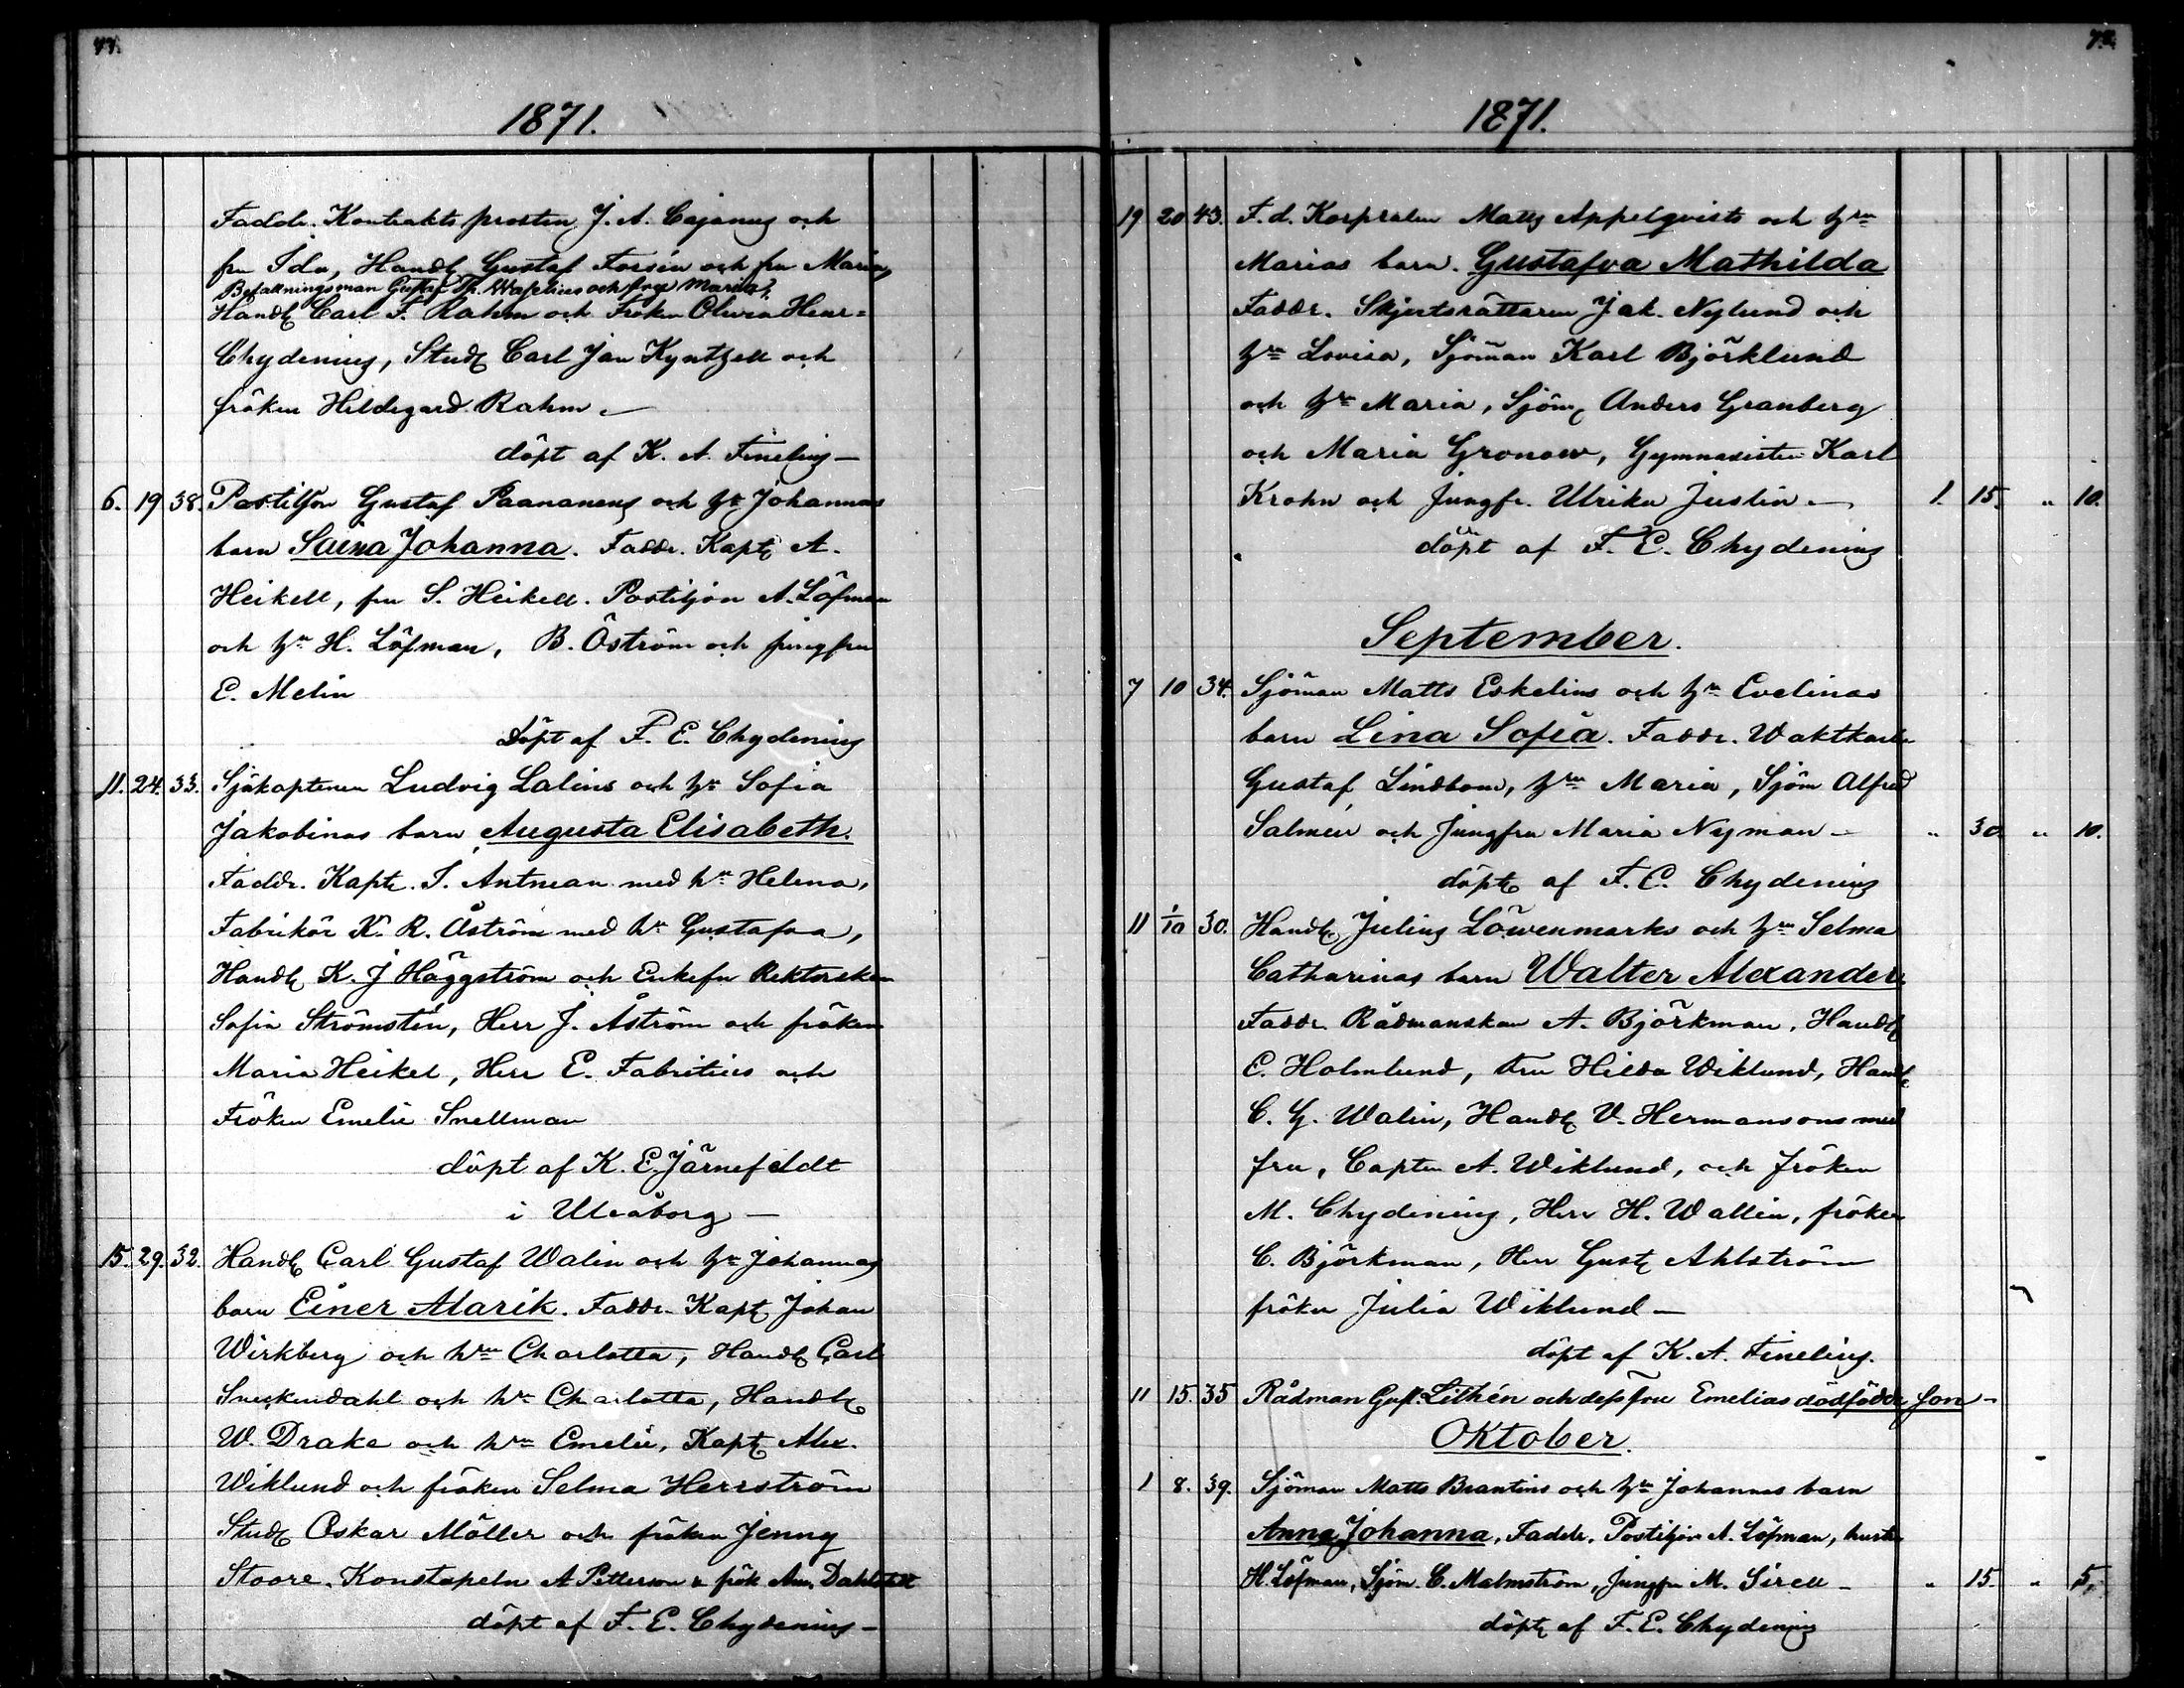 1871.
Faddr. Kontraktsprosten J. A. Cajanus och
fru Ida, Handl Gustaf Forsén och fru Maria,
Befallningsman Gustaf Th. Wapelius och fru Maria,
Handl Carl F. Rahm och Fröken Olivia Henr=
Chydenius, Stud Carl Jan Kyntzell och
fröken Hildegard Rahm. —
döpt af K. A. Fineliug —
6. 19 38. Postiljon Gustaf Paananens och hu Johannas
barn Saima Johanna. Faddr. Kapt A.
Heikell, fru S. Heikell. Postiljon A. Löfman
och hu H. Löfman, B. Öström och jungfru
E. Melin
Döpt af F. E. Chydenius
11. 24. 33. Sjökaptenen Ludvig Lalins och hu Sofia
Jakobinas barn Augusta Elisabeth.
Faddr. Kapt. I. Antman med hu Helena,
Fabrikör K. R. Åström med hu Gustafva,
Handl K. J Häggström och Enkefru Rektorskan
Sofia Strömstén, Herr J. Åström och fröken
Maria Heikel, Herr E. Fabritius och
Fröken Emelie Snellman
döpt af K. E. Järnefeldt
i Uleåborg —
15. 29. 32. Handl Carl Gustaf Walin och hu Johannas
barn Einer Alarik. Faddr. Kapt Johan
Wirkberg och hru Charlotta, Handl Carl
Sneckendahl och hu Charlotta, Handl
W. Drake och hru Emelie, Kapt Alex.
Wiklund och fröken Selma Herrström
Stud Oskar Möller och fröken Jenny
Stoore. Konstapeln A Petterson & frök Am. Dahlstedt
döpt af F. E. Chydenius —
1871.
19 20 43. F. d. Korpralen Matts Appelqvists och hru
Marias barn. Gustafva Mathilda
Faddr. Skjutsrättaren Jak. Nylund och
hru Lovisa, Sjöman Karl Björklund
och hru Maria, Sjöm Anders Granberg
och Maria Gronow, Gymnasisten Karl
Krohn och Jungfr. Ulrika Juslin — 1. 15. " 10.
döpt af F. E. Chydenius
September.
7 10 34. Sjöman Matts Eskelins och hru Evelinas
barn Lina Sofia. Faddr. Waktkarln
Gustaf Lindbom, hru Maria, Sjöm Alfred
Salmén och Jungfru Maria Nyman — " 30 " 10.
döpt af F. E. Chydenius
11 1/10 30. Handl Julius Löwenmarks och hru Selma
Catharinas barn Walter Alexander.
Faddr. Rådmanskan A. Björkman, Handl
E. Holmlund, Fru Hilda Wiklund, Handl
C. G. Walin, Handl V. Hermansons med
fru, Capten A. Wiklund, och fröken
M. Chydenius, Herr H. Wallin, fröken
C. Björkman, Herr Gust Ahlström
fröken Julia Wiklund —
döpt af K. A. Fineliug.
11 15. 35 Rådman Gust. Lithén och dess fru Emelias dödfödde Son —
Oktober.
1 8. 39. Sjöman Matts Brantins och hru Johannas barn
Anna Johanna, Faddr. Postiljon A. Löfman, hustr
H. Löfman, Sjöm. C. Malmström, Jungfru M. Sirell — " 15. " 5.
döpt af F. E. Chydenius